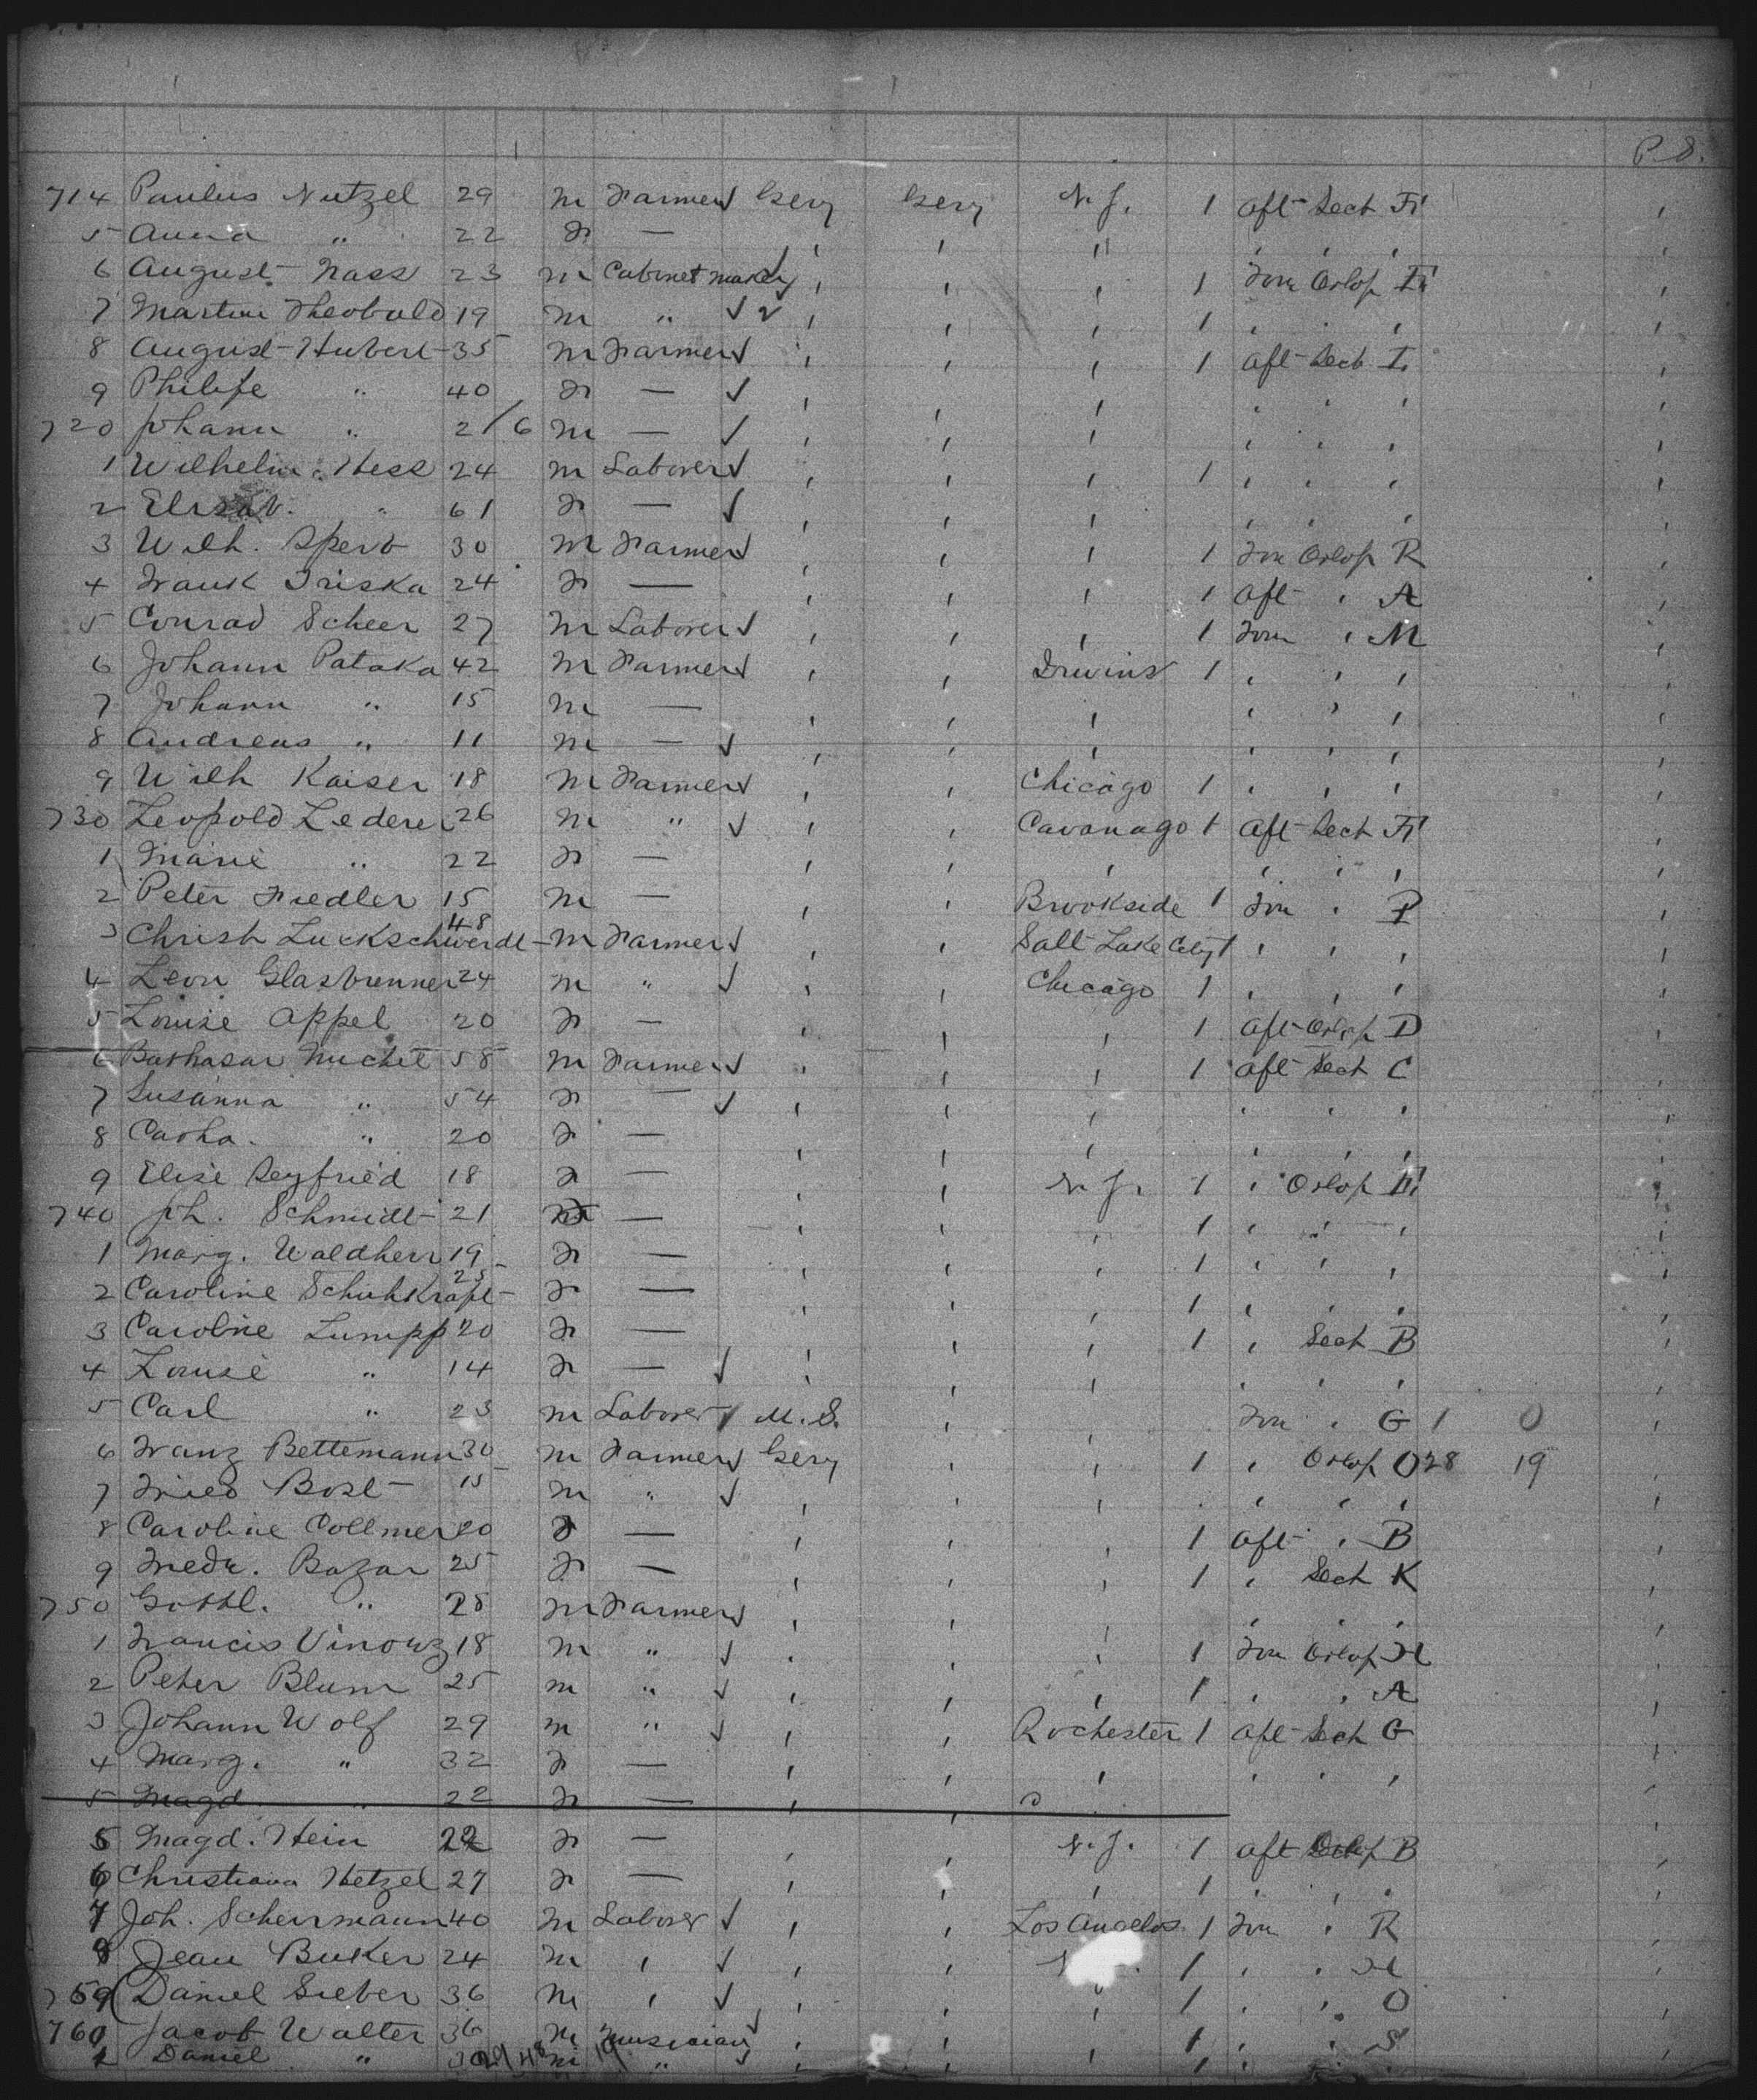 P. 8.
714 Paulus Nutzel 29 m Farmer Gery Gery N. Y. 1 aft Sect F
5 Anna " 22 F — , , " , , ,
6 August Nass 23 m Cabinet maker , , , 1 Forw Orlop F
7 Martin Theobald 19 m " , , , 1 , , ,
8 August Hubert 35 m Farmer , , , 1 aft Sect I
9 Philipe " 40 F — , , , , , ,
720 Johann " 2/6 m — , , , , , ,
1 Wilhelm Hess 24 m Laborer , , , 1 , , ,
2 " 61 F — , , , , , ,
3 Wilh. Sperb 30 m Farmer , , , 1 Forw Orlop R
4 Frank Triska 24 F — , , , 1 aft , A
5 Conrad Scheer 27 m Laborer , , , 1 Forw , M
6 Johann Pataka 42 m Farmer , , 1 , , ,
7 Johann " 15 m — , , , , , ,
8 Andreas " 11 m — , , , , , ,
9 Wilh Kaiser 18 m Farmer , , Chicago 1 , , ,
730 Leopold Lederer 26 m " , , Cavanago 1 aft Sect F
1 Marie " 22 F — , , , , , ,
2 Peter Fiedler 15 m — , , Brookside 1 Forw , P
3 Christ Luckschwerdt 48 m Farmer , , Salt Lake City 1 , , ,
4 Leon Glasbrenner 24 m " , , Chicago 1 , , ,
5 Louise Appel 20 F — , , , 1 aft Orlop D
6 Balthasar Michel 58 m Farmer , , , 1 aft Sect C
7 Susanna " 54 F — , , , , , ,
8 " 20 F — , , , , , ,
9 Elise Seyfried 18 F — , , N. Y. 1 , Orlop
740 Ph. Schmidt 21 — , , , 1 , " ,
1 Marg. Waldherr 19 F — , , , 1 , , ,
2 Caroline Schuhkraft 25 F — , , , 1 , , ,
3 Caroline Lumpp 20 F — , , , 1 , Sect B
4 Louise " 14 F — , , , , , ,
5 Carl " 23 m Laborer U. S. , , Forw , G 1 0
6 Franz Bettemann 30 m Farmer Gery , , 1 , Orlop O 28 19
7 Fried Bosl 15 m " , , , , , ,
8 Caroline Collmer 20 F — , , , 1 aft , B
9 Fredr. Bazar 25 F — , , , 1 , Sect K
750 Gottl. " 28 m Farmer , , , , , ,
1 Francis Vinowz 18 m " , , , 1 Forw Orlop H
2 Peter Blum 25 m " , , , 1 , , A
3 Johann Wolf 29 m " , , Rochester 1 aft Sect G
4 Marg. " 32 F — , , , , , ,
5 Magd. " 22 F — , ,
5 Magd. Hein 22 F — , , N. Y. 1 aft Orlop B
6 Christiana Hetzel 27 F — , , , 1 , , ,
7 Joh. Scherrmann 40 m Laborer , , Los Angelos 1 Forw , R
8 Jean Buker 24 m , , , 1 , , H
759 Daniel Sieber 36 m , , , , 1 , , O
760 Jacob Walter 36 m Musician , , , 1 , , S
1 Daniel " m " , , , 1 , , ,